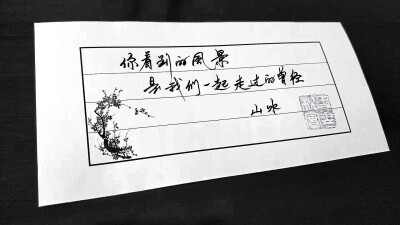 你看到的风景
是我们一起走过的曾经
山水